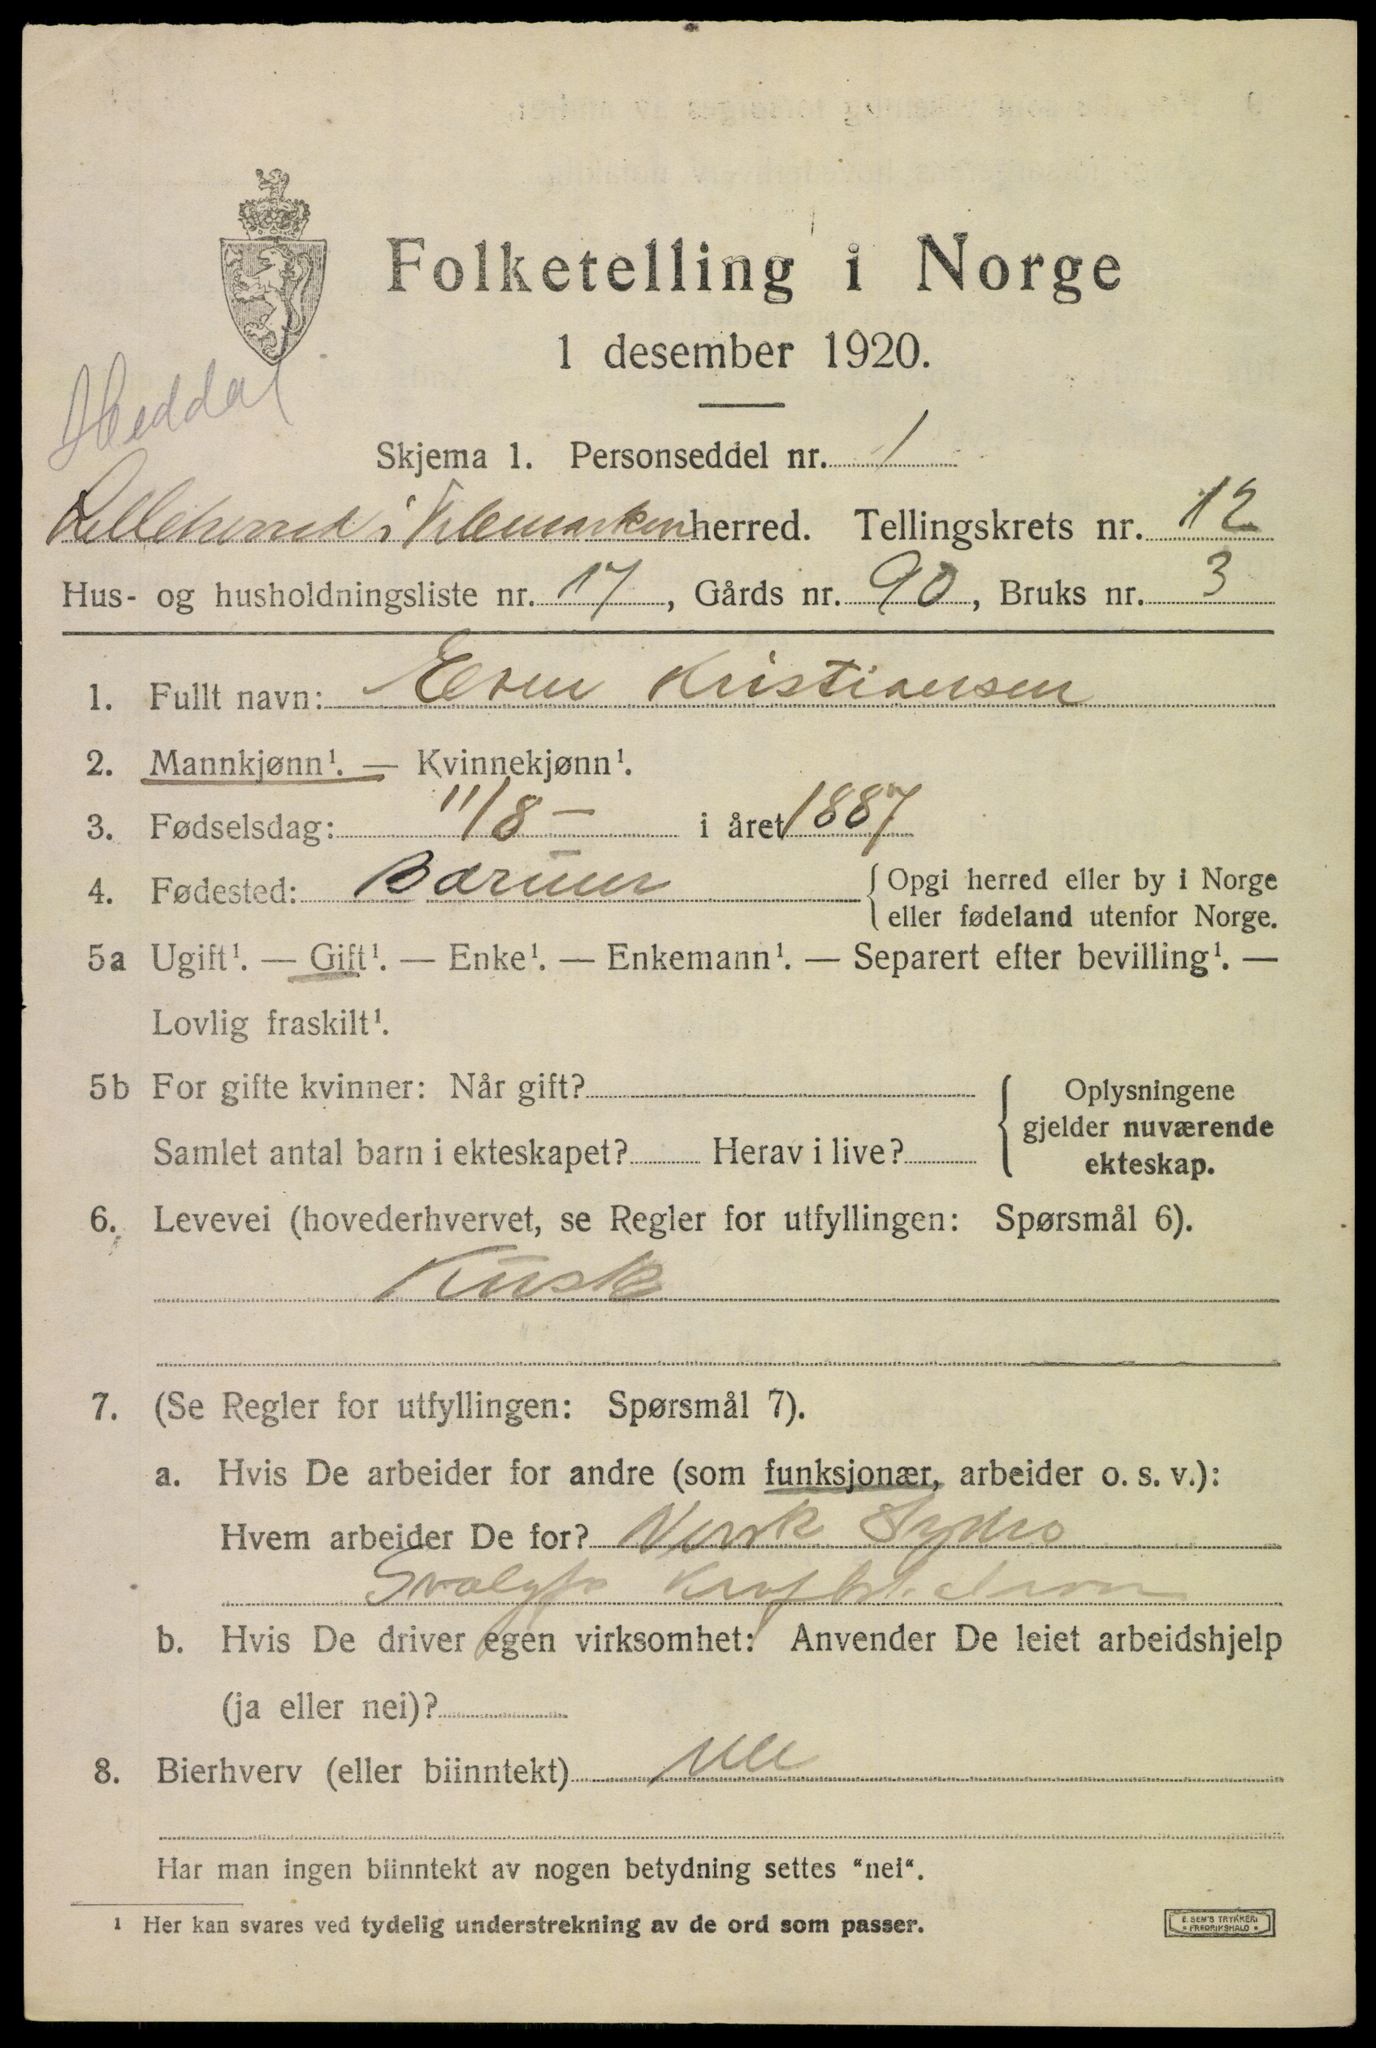 Folketelling i Norge
1 desember 1920.
Heddal
Skjema 1. Personseddel nr. 1
Lilleherred i Telemarken herred. Tellingskrets nr. 12
Hus- og husholdningsliste nr. 17, Gårds nr. 90, Bruks nr. 3
1. Fullt navn: Even Kristiansen
2. Mannkjønn¹. — Kvinnekjønn¹.
3. Fødselsdag: 11/8 — i året 1887
4. Fødested: Bærum { Opgi herred eller by i Norge
eller fødeland utenfor Norge.
5a Ugift¹. — Gift¹. — Enke¹. — Enkemann¹. — Separert efter bevilling¹. —
Lovlig fraskilt¹.
5b For gifte kvinner: Når gift?
Samlet antal barn i ekteskapet? Herav i live?
{ Oplysningene
gjelder nuværende
ekteskap.
6. Levevei (hovederhvervet, se Regler for utfyllingen: Spørsmål 6).
Kusk
7. (Se Regler for utfyllingen: Spørsmål 7).
a. Hvis De arbeider for andre (som funksjonær, arbeider o. s. v.):
Hvem arbeider De for? Norsk Hydro
Svælgfos
b. Hvis De driver egen virksomhet: Anvender De leiet arbeidshjelp
(ja eller nei)?
8. Bierhverv (eller biinntekt) nei
Har man ingen biinntekt av nogen betydning settes "nei".
¹ Her kan svares ved tydelig understrekning av de ord som passer.
E. SEM'S TRYKKERI
* FREDRIKSHALD *